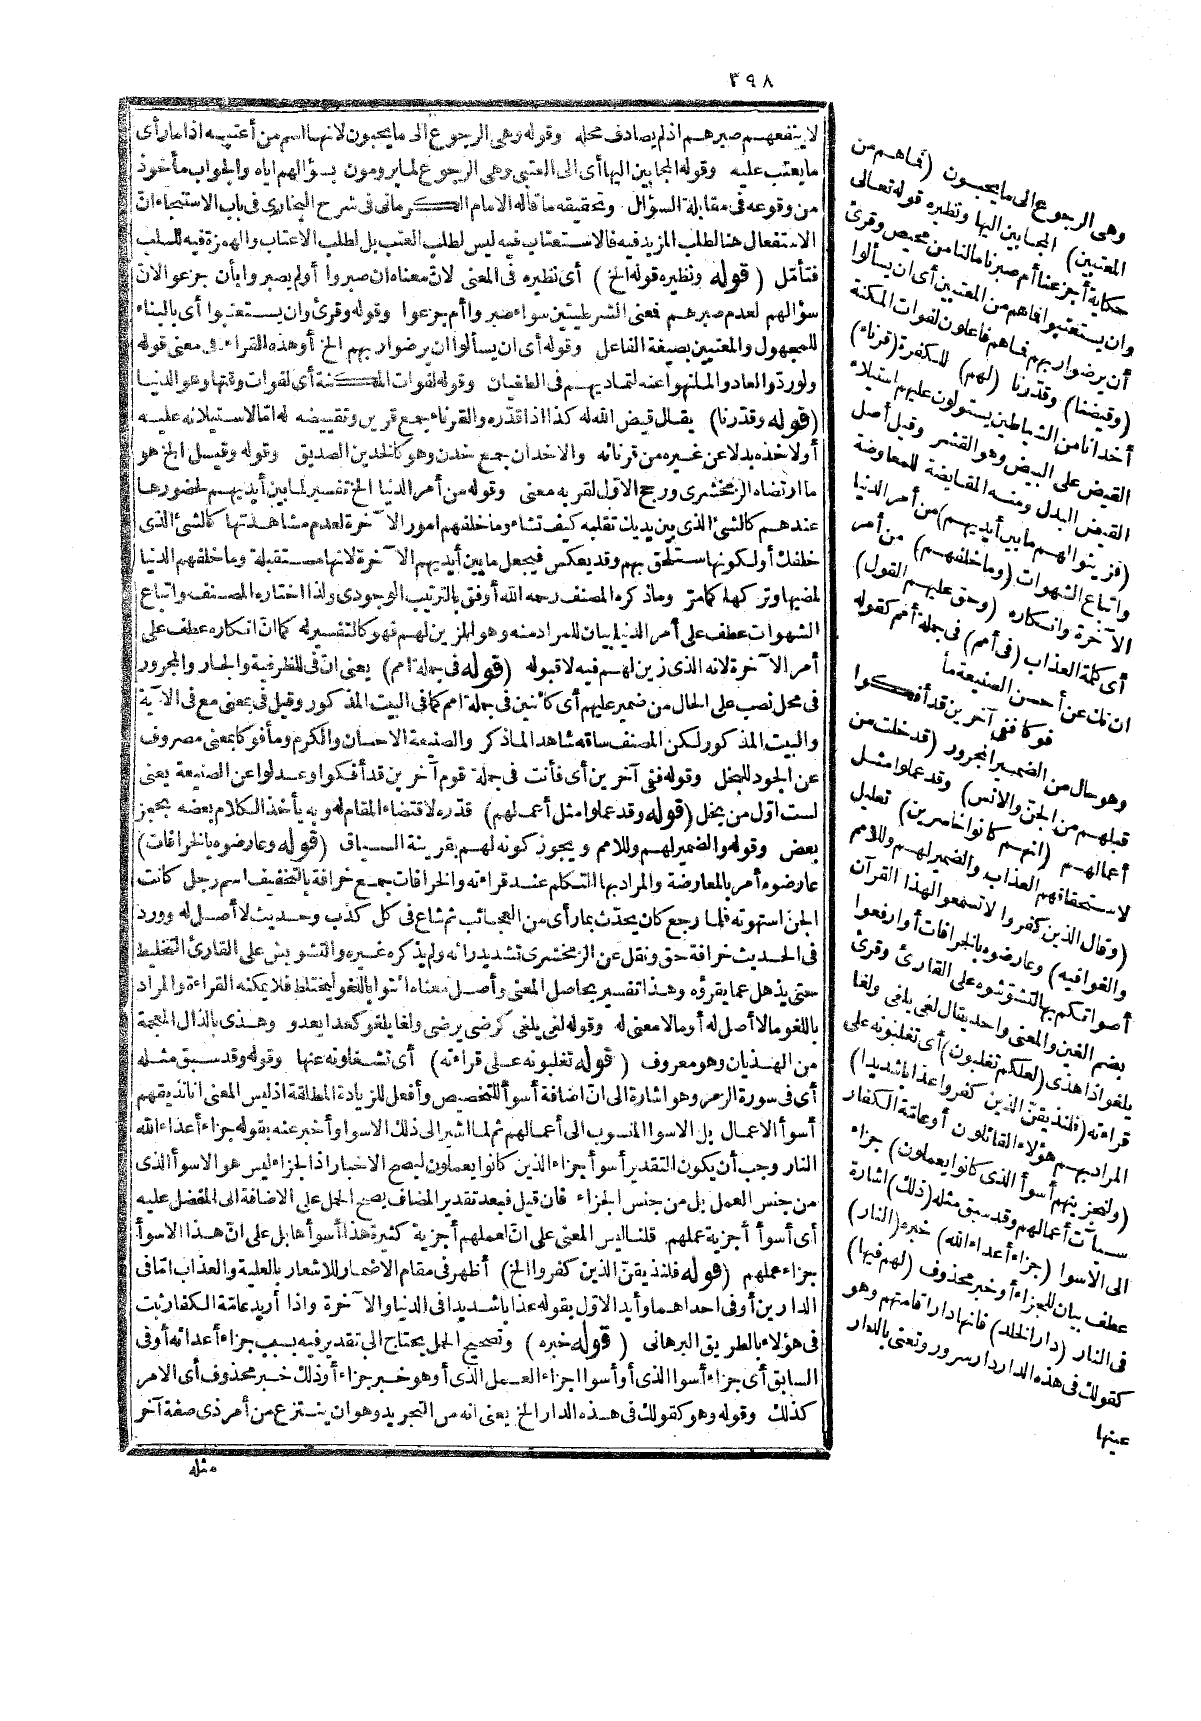 ٣٩٨
لا ينفعهم صبرهم اذ لم يصادف محله وقوله وهى الرجوع الى ما يحبون لانها اسم من أعتبه اذا ما رأى
ما يعتب عليه وقوله المجابين اليها أى الى العتبى وهى الرجوع لما يرومون بسؤالهم اياه والجواب مأخوذ
من وقوعه فى مقابلة السؤال وتحقيقه ما قاله الامام الكرمانى فى شرح البخارى فى باب الاستنجاء انّ
الاستفعال هنا لطلب المزيد فيه فالاستعتاب فيه ليس لطلب العتب بل لطلب الاعتاب والهمزة فيه للسلب
فتأمّل (قوله ونظيره قوله الخ) أى نظيره فى المعنى لانّ معناه ان صبروا أو لم يصبروا بأن جزعوا لان
سؤالهم لعدم صبرهم فمعنى الشرطيتين سواء صبروا أم جزعوا وقوله وقرئ وان يستعتبوا أى بالبناء
للمجهول والمعتبين بصيغة الفاعل وقوله أى ان يسألوا ان يرضوا ربهم الخ أو هذه القراءة فى معنى قوله
ولو ردّوا لعادوا لما نهوا عنه لتماديهم فى الطغيان وقوله لفوات المكنة أى لفوات وقتها وهو الدنيا
(قوله وقدّرنا) يقال قيض الله له كذا اذا قدّره والقرناء جمع قرين وتقييضه له امّا لاستيلائه عليه
أو لاخذه بدلا عن غيره من قرنائه والاخدان جمع خدن وهو كالخدين الصديق وقوله وقيل الخ هو
ما ارتضاه الزمخشرى ورجح الاوّل لقربه معنى وقوله من أمر الدنيا الخ تفسير لما بين أيديهم لحضورها
عندهم كالشئ الذى بين يديك تقلبه كيف تشاء وما خلفهم امور الآخرة لعدم مشاهدتها كالشئ الذى
خلفك أو لكونها ستلحق بهم وقد يعكس فيجعل ما بين أيديهم الآخرة لانها مستقبلة وما خلفهم الدنيا
لمضيها وتركها كما مرّ وما ذكره المصنف رحمه الله أوفق بالترتيب الوجودى ولذا اختاره المصنف واتباع
الشهوات عطف على أمر الدنيا بيان للمراد منه وهو المزين لهم فهو كالتفسير له كما انّ انكاره عطف على
أمر الآخرة لانه الذى زين لهم فيه لا قبوله (قوله فى جملة امم) يعنى انّ فى للظرفية والجار والمجرور
فى محل نصب على الحال من ضمير عليهم أى كائنين فى جملة امم كما فى البيت المذكور وقيل فى بمعنى مع فى الآية
والبيت المذكور لكن المصنف ساقه شاهدا لما ذكر والصنيعة الاحسان والكرم ومأفوكا بمعنى مصروف
عن الجود للبخل وقوله ففى آخرين أى فأنت فى جملة قوم آخرين قد أفكوا وعدلوا عن الصنيعة يعنى
لست اوّل من بخل (قوله وقد عملوا مثل أعمالهم) قدّره لاقتضاء المقام له وبه يأخذ الكلام بعضه بحجز
بعض وقوله والضمير لهم وللامم ويجوز كونه لهم بقرينة السياق (قوله وعارضوه بالخرافات)
عارضوه أمر بالمعارضة والمراد بها التكلم عند قراءته والخرافات جمع خرافة بالتخفيف اسم رجل كانت
الجن استهوته فلما رجع كان يحدّث بما رأى من العجائب ثم شاع فى كل كذب وحديث لا أصل له وورد
فى الحديث خرافة حق ونقل عن الزمخشرى تشديد رائه ولم يذكره غيره والتشويش على القارئ التخليط
حتى يذهل عما يقرؤه وهذا تفسير بحاصل المعنى وأصل معناه ائتوا باللغو ليختلط فلا يمكنه القراءة والمراد
باللغو ما لا أصل له أو ما لا معنى له وقوله لغى يلغى كرضى يرضى ولغا يلغو كعدا يعدو وهذى بالذال المعجمة
من الهذيان وهو معروف (قوله تغلبونه على قراءته) أى تشغلونه عنها وقوله وقد سبق مثله
أى فى سورة الزمر وهو اشارة الى انّ اضافة أسوأ للتخصيص وأفعل للزيادة المطلقة اذ ليس المعنى انا نذيقهم
أسوأ الاعمال بل الاسوأ المنسوب الى أعمالهم ثم لما اشير الى ذلك الاسوا وأخبر عنه بقوله جزاء أعداء الله
النار وجب أن يكون التقدير أسوأ جزاء الذين كانوا يعملون ليصح الاخبار اذ الجزاء ليس هو الاسوأ الذى
من جنس العمل بل من جنس الجزاء فان قيل فبعد تقدير المضاف يصح الحمل على الاضافة الى المفضل عليه
أى أسوأ أجزية عملهم قلنا ليس المعنى على انّ لعملهم أجزية كثيرة هذا أسوأها بل على انّ هذا الاسوأ
جزاء عملهم (قوله فلنذيقنّ الذين كفروا الخ) أظهر فى مقام الاضمار للاشعار بالعلية والعذاب امّا فى
الدارين أو فى احداهما وأيد الاوّل بقوله عذابا شديدا فى الدنيا والآخرة واذا أريد عامّة الكفار ثبت
فى هؤلاء بالطريق البرهانى (قوله خبره) وتصحيح الحمل يحتاج الى تقدير فيه بسبب جزاء أعدائه أو فى
السابق أى جزاء أسوا الذى أو أسوا جزاء العمل الذى أو هو خبر جزاء أو ذلك خبر محذوف أى الامر
كذلك وقوله وهو كقولك فى هذه الدار الخ يعنى انه من التجريد وهو ان ينتزع من أمر ذى صفة آخر
مثله
وهى الرجوع الى ما يحبون (فماهم من
المعتبين) المجابين اليها ونظيره قوله تعالى
حكاية أجزعنا أم صبرنا مالنا من محيص وقرئ
وان يستعتبوا فماهم من المعتبين أى ان يسألوا
أن يرضوا ربهم فماهم فاعلون لفوات المكنة
(وقيضنا) وقدّرنا (لهم) للكفرة (قرناء)
أخدانا من الشياطين يستولون عليهم استيلاء
القيض على البيض وهو القشر وقيل أصل
القيض البدل ومنه المقايضة للمعاوضة
(فزينوا لهم ما بين أيديهم) من أمر الدنيا
واتباع الشهوات (وما خلفهم) من أمر
الآخرة وانكاره (وحق عليهم القول)
أى كلمة العذاب (فى أمم) فى جملة أمم كقوله
ان تك عن أحسن الصنيعة مأ
فوكا ففى آخرين قد أفكوا
وهو حال من الضمير المجرور (قد خلت من
قبلهم من الجن والانس) وقد عملوا مثل
أعمالهم (انهم كانوا خاسرين) تعليل
لاستحقاقهم العذاب والضمير لهم وللامم
(وقال الذين كفروا لا تسمعوا لهذا القرآن
والغوا فيه) وعارضوه بالخرافات أو ارفعوا
أصواتكم بها لتشوّشوه على القارئ وقرئ
بضم الغين والمعنى واحد يقال لغى يلغى ولغا
يلغو اذا هذى (لعلكم تغلبون) أى تغلبونه على
قراءته (فلنذيقنّ الذين كفروا عذابا شديدا)
المراد بهم هؤلاء القائلون أو عامّة الكفار
(ولنجزينهم أسوأ الذى كانوا يعملون) جزاء
سيآت أعمالهم وقد سبق مثله (ذلك) اشارة
الى الاسوا (جزاء أعداء الله) خبره (النار)
عطف بيان للجزاء أو خبر محذوف (لهم فيها)
فى النار (دار الخلد) فانها دار اقامتهم وهو
كقولك فى هذه الدار دار سرور وتعنى بالدار
عينها